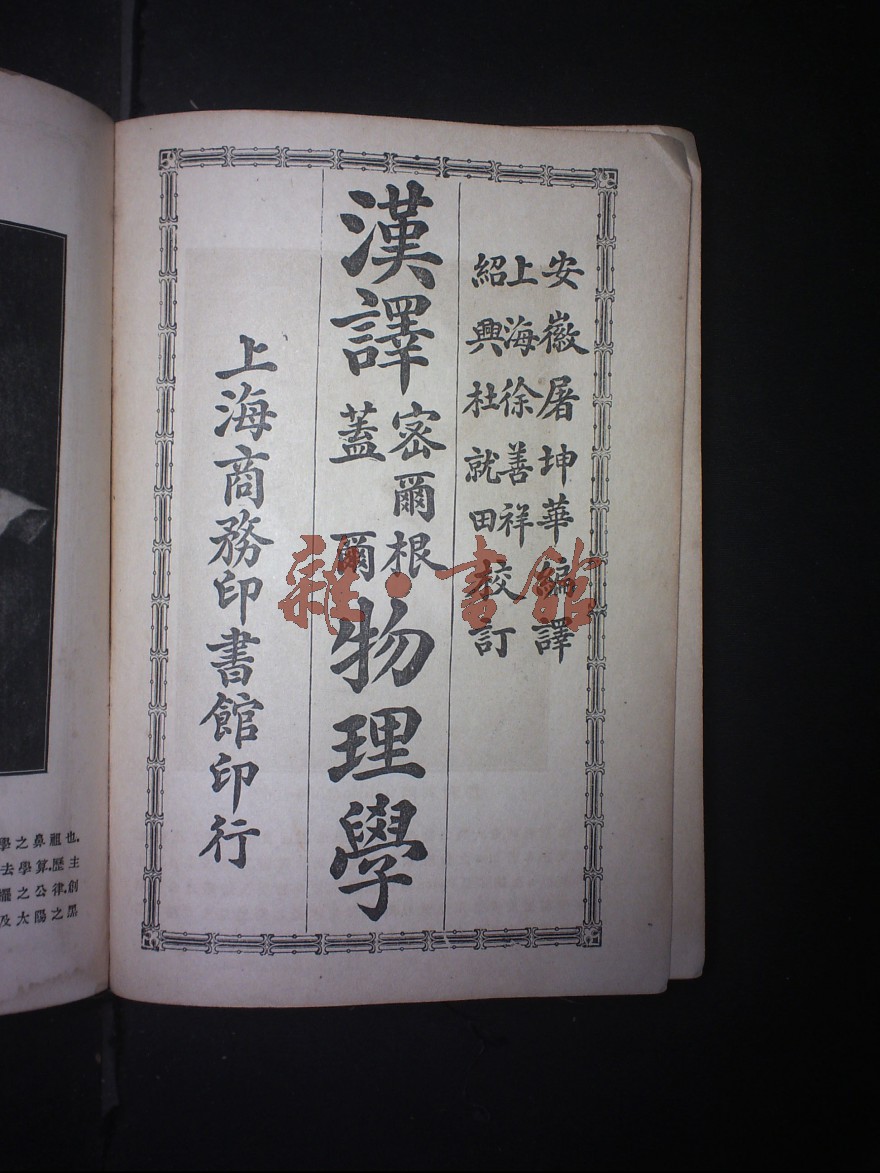 安徽屠坤華編譯
上海徐善祥
紹興杜就田
校訂
漢譯
密爾根
蓋爾
物理學
上海商務印書館印行
雜·書館
也祖鼻之學
主歷算學去
創律公之擺
黑之陽太及